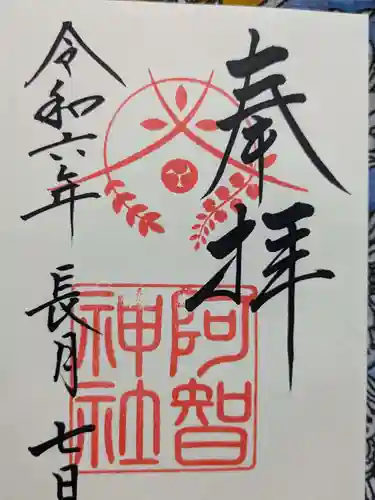 奉拝
阿智
神社
令和六年
長月
七日